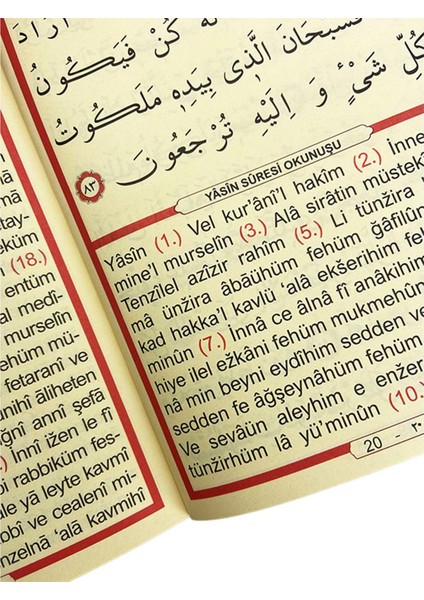 اَرَادَ
لَهُ كُنْ فَيَكُونُ
فَسُبْحَانَ الَّذ۪ي بِيَدِه۪ مَلَكُوتُ
كُلِّ شَيْءٍ وَ اِلَيْهِ تُرْجَعُونَ
٨٣
YÂSİN SÛRESİ OKUNUŞU
Yâsîn (1.) Vel kur'âni'l hakîm (2.) İnne
mine'l murselîn (3.) Alâ sirâtin müstekî
Tenzîlel azîzir rahîm (5.) Li tünžira
mâ ünžira âbâühüm fehüm ğâfilûn
kad hakka'l kavlü 'alâ ekšerihim fe
minûn (7.) İnnâ ce âlnâ fî anâkihim
hiye ilel ežkâni fehüm mukmehûn
nâ min beyni eydîhim sedden ve
sedden fe âğşeynâhüm fehüm
Ve sevâün aleyhim e enžer
tünžirhüm lâ yü'minûn (10.)
20 - ٢٠
tay-
eküm
(18.)
entüm
al medî-
murselîn
ehüm mü-
fetaranî ve
unihî âliheten
ğnî annî şefâ
.) İnnî ižen le fî
i rabbiküm fes-
ale yâ leyte kavmî
bbî ve cealenî mi-
nzelnâ 'alâ kavmihî